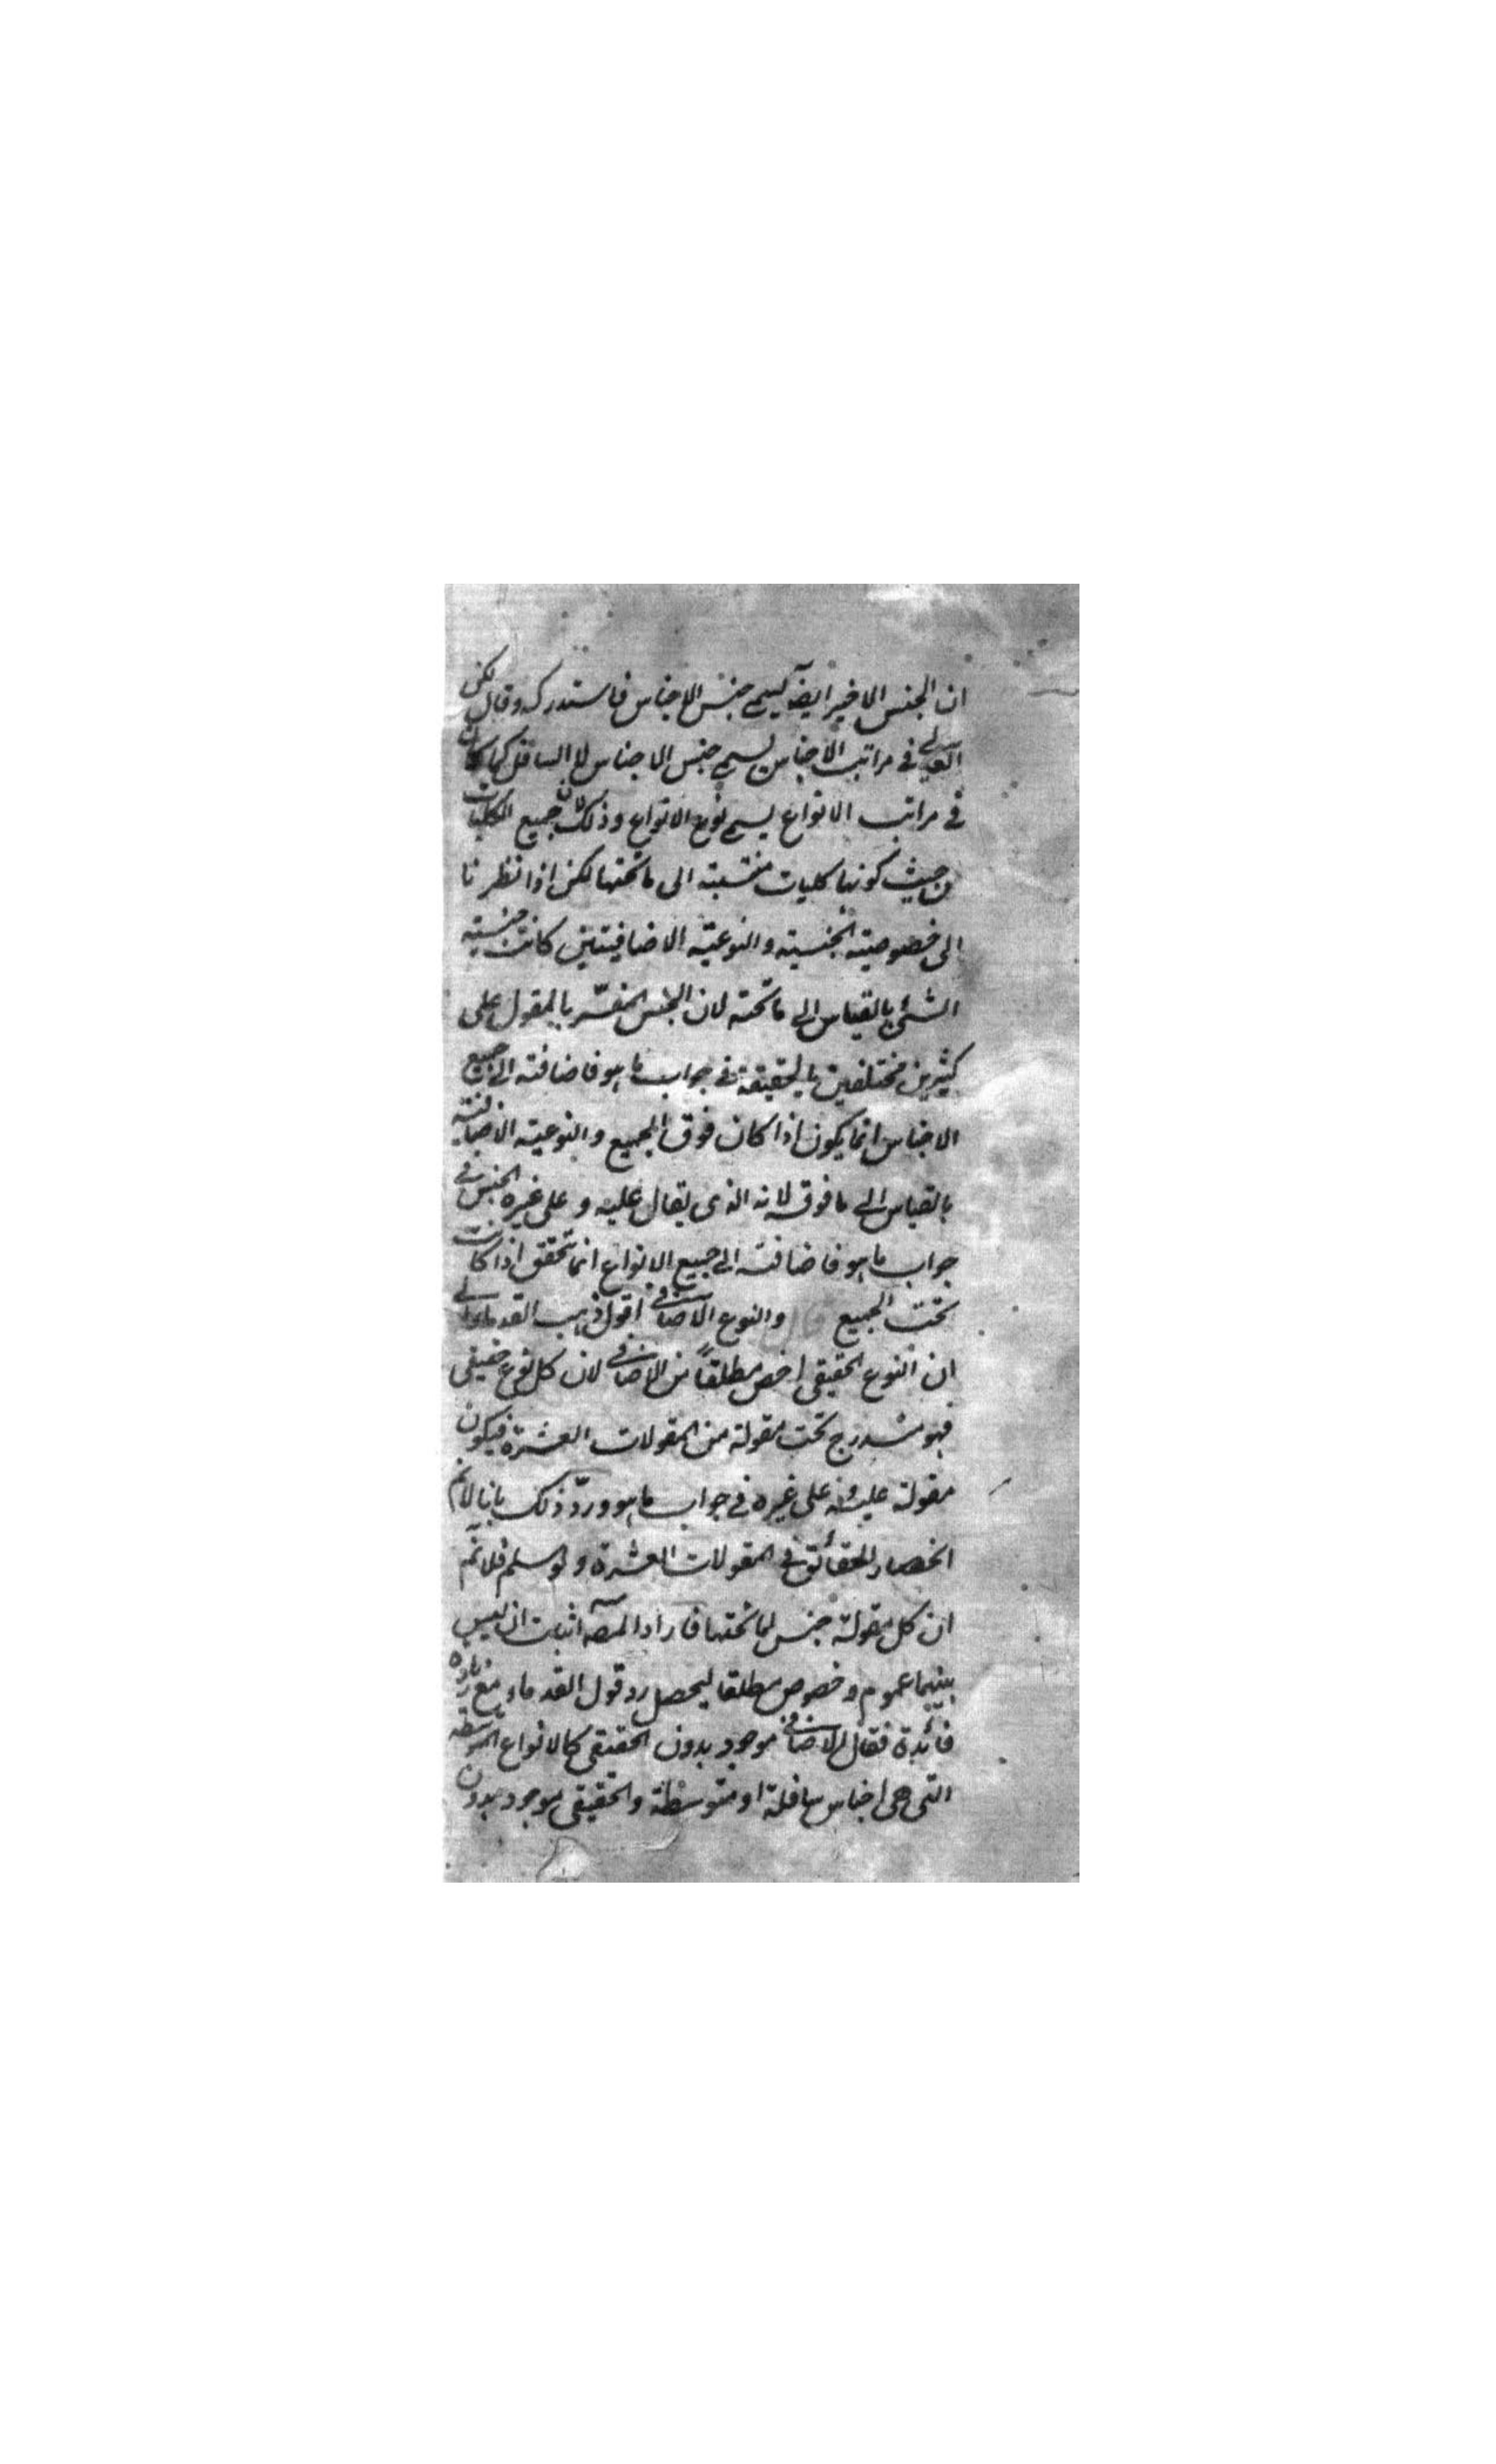 ان الجنس الاخير ايضاً يسمى جنس الاجناس فاستدركه وقال لكن
العالى فى مراتب الاجناس يسمى جنس الاجناس لا السافل كما كان
فى مراتب الانواع يسمى نوع الانواع وذلك لان جميع الكليات
من حيث كونها كليات منتسبة الى ما تحتها لكن اذا نظرنا
الى خصوصية الجنسية والنوعية الاضافيتين كانت جنسية
الشئ بالقياس الى ما تحته لان الجنس المفسّر بالمقول على
كثيرين مختلفين بالحقيقة فى جواب ما هو فاضافته الى جميع
الاجناس انما يكون اذا كان فوق الجميع والنوعية الاضافية
بالقياس الى ما فوقه لانه الذى يقال عليه وعلى غيره الجنس فى
جواب ما هو فاضافته الى جميع الانواع انما تحقق اذا كانت
تحت الجميع قال والنوع الاضافى اقول ذهب القدماء الى
ان النوع الحقيقى اخص مطلقاً من الاضافى لان كل نوع حقيقى
فهو مندرج تحت مقولة من المقولات العشرة فيكون
مقولة عليه وعلى غيره فى جواب ما هو وردّ ذلك بانا لانم
انحصار الحقائق فى المقولات العشرة ولو سلم فلانم
ان كل مقولة جنس لما تحتها فاراد المصه اثبات ان ليس
بينهما عموم وخصوص مطلقا ليحصل رد قول القدماء مع زيادة
فائدة فقال الاضافى موجود بدون الحقيقى كالانواع المتوسطة
التى هى اجناس سافلة او متوسطة والحقيقى موجود بدون